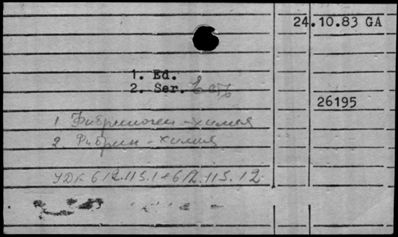 24.10.83 GA
1. Ed.
2. Ser. Есть
26195
1 Фибриноген - химия
2 Фибрин - химия
УДК 612.115.1+612.115.12